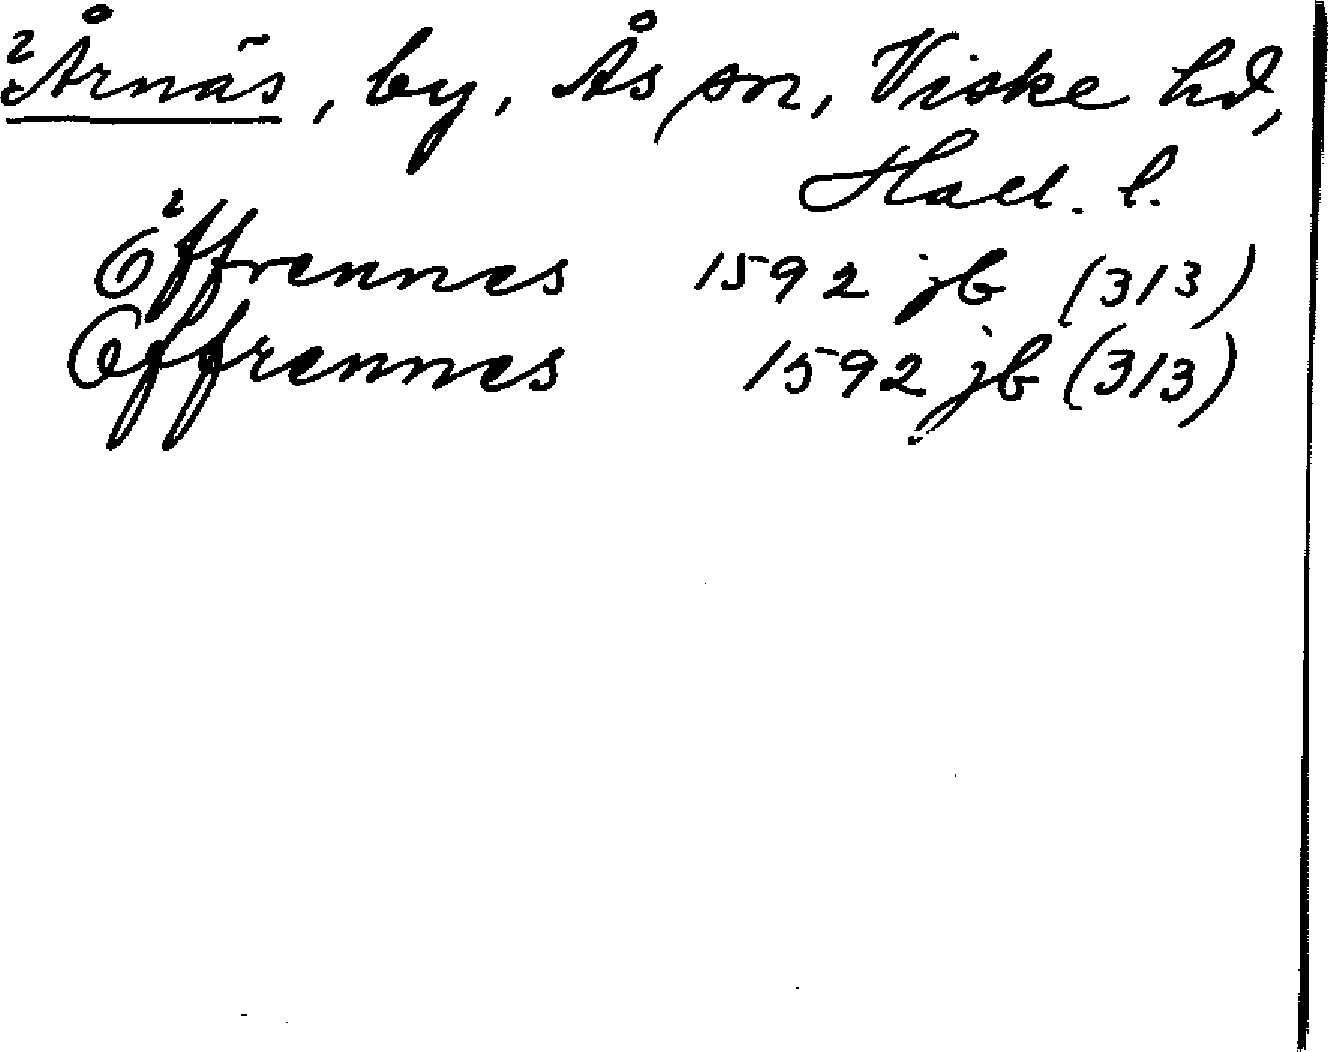 ²Årnäs, by, Ås sn, Viske hd,
Hall. l.
²Öffrennes 1592 jb (313)
Offrennes 1592 jb (313)